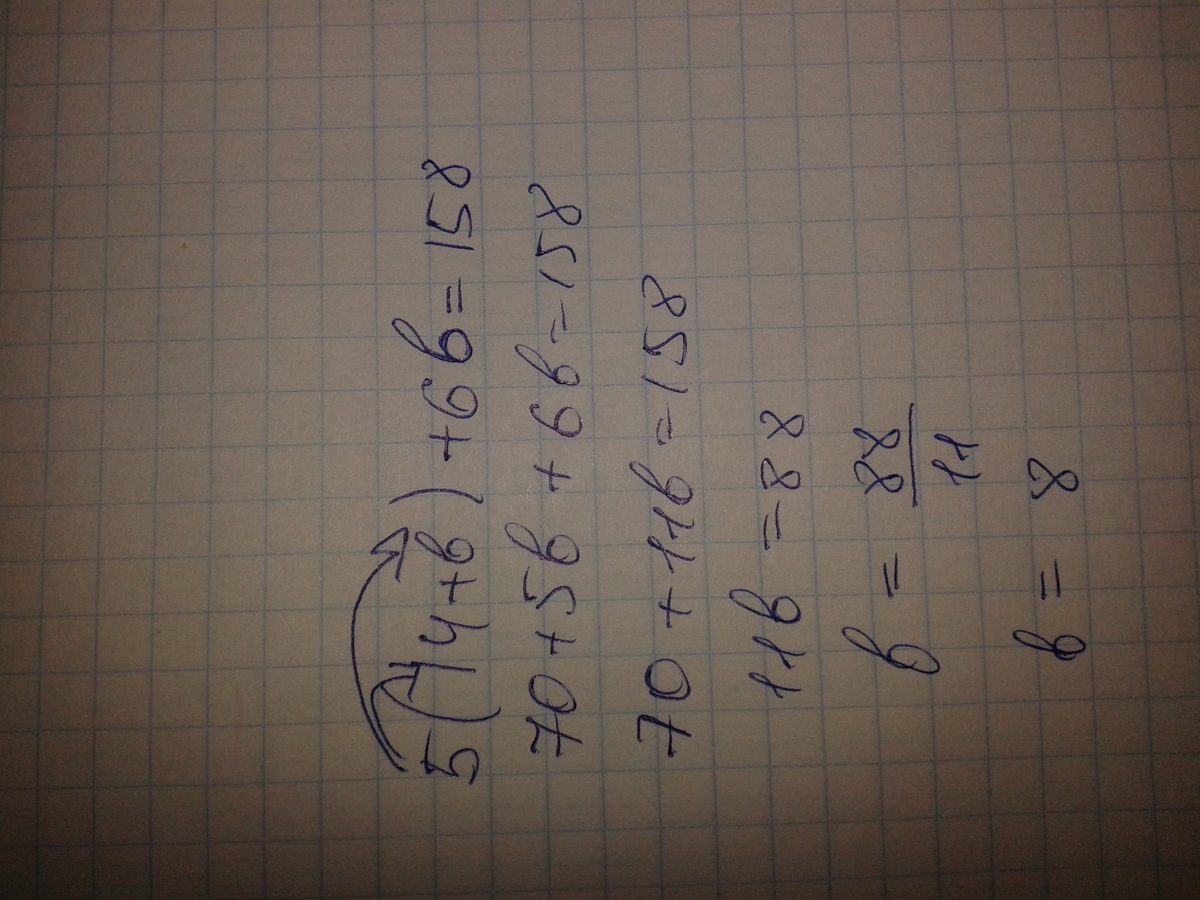 5(14+b)+6b=158
70+5b+6b=158
70+11b=158
11b=88
b=88/11
b=8